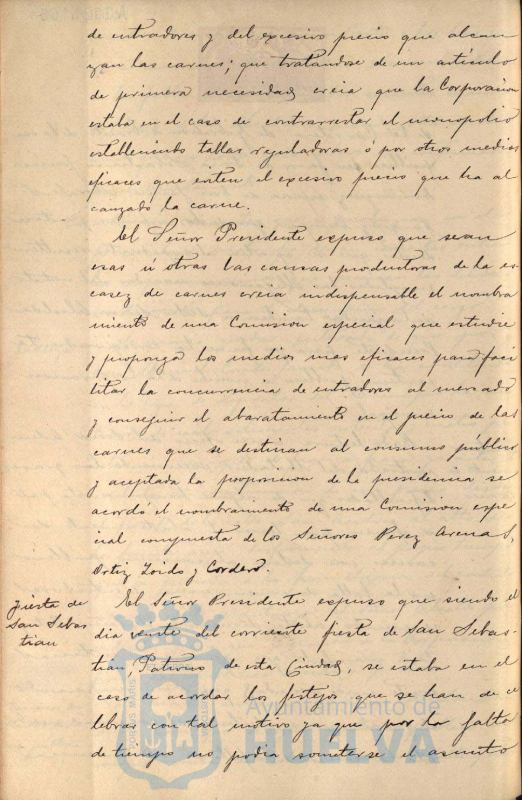 de entradores y del excesivo precio que alcan
zan las carnes; que tratandose de un artículo
de primera necesidad, creia que la Corporacion
estaba en el caso de contrarrestar el monopolio
estableciendo tablas reguladoras ó por otros medios
eficaces que eviten el excesivo precio que ha al
canzado la carne.
El Señor Presidente expuso que sean
esas ú otras las causas productoras de la es
casez de carnes creia indispensable el nombra
miento de una Comision especial que estudie
y proponga los medios mas eficaces para faci
litar la concurrencia de entradores al mercado
y conseguir el abaratamiento en el precio de las
carnes que se destinan al consumo público
y aceptada la proposicion de la presidencia se
acordó el nombramiento de una Comision espe
cial compuesta de los Señores Perez Arenas,
Ortiz Zoido y Cordero.
Fiesta de
San Sebas
tian
El Señor Presidente expuso que siendo el
dia veinte del corriente fiesta de San Sebas-
tian, Patrono de esta Ciudad, se estaba en el
caso de acordar los festejos que se han de ce
lebrar con tal motivo ya que por la falta
de tiempo no podia someterse el asunto
Ayuntamiento de
HUELVA